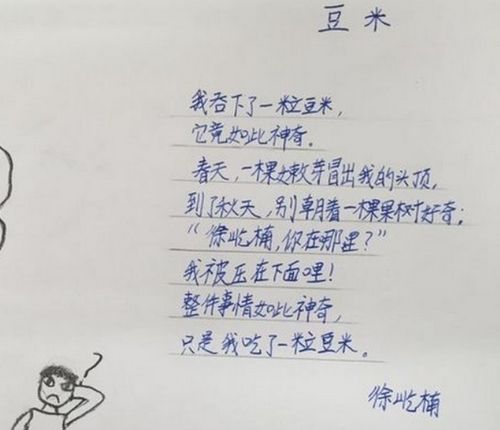 豆米
我吞下了一粒豆米，
它竟如此神奇。
春天，一棵嫩芽冒出我的头顶，
到了秋天，别朝着一棵果树好奇；
“徐屹楠，你在那里？”
我被压在下面哩！
整件事情如此神奇，
只是我吃了一粒豆米。
徐屹楠
？